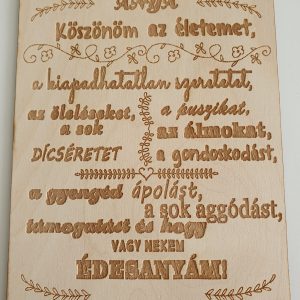 ANYA
Köszönöm az életemet,
a kiapadhatatlan szeretetet,
az öleléseket, a puszikat,
a sok az álmokat,
DÍCSÉRETET a gondoskodást,
a gyengéd ápolást,
a sok aggódást,
támogatást és hogy
VAGY NEKEM
ÉDESANYÁM!